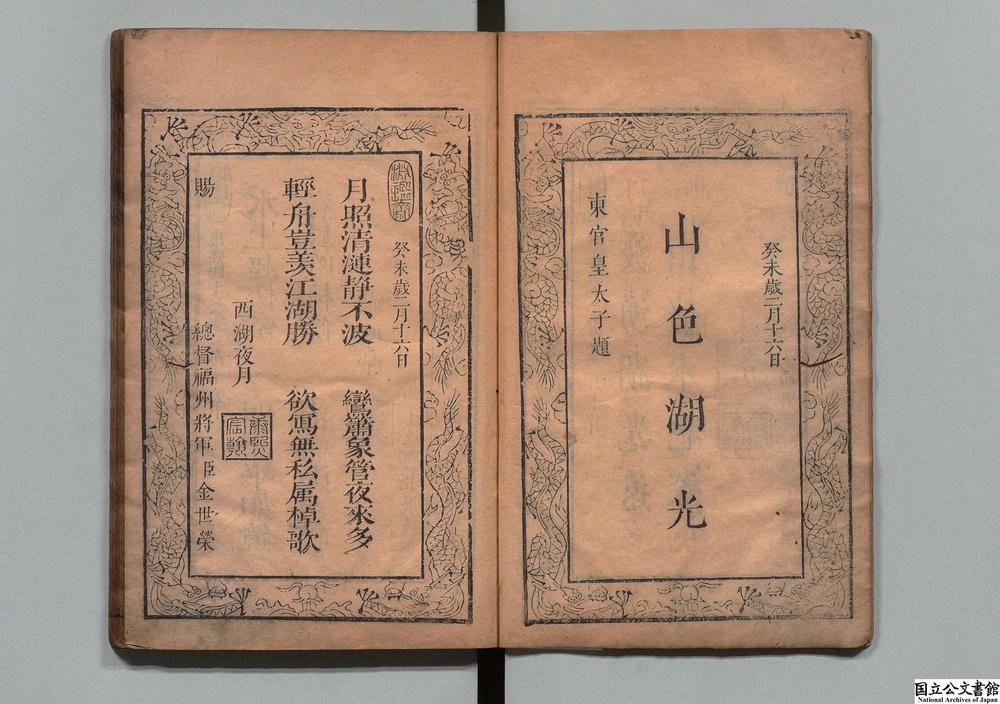 癸未歲二月十六日
山色湖光
東宮皇太子題
淵鑑齋
癸未歲二月十六日
月照清漣靜不波　鸞簫象管夜來多
輕舟豈羨江湖勝　欲寫無私属棹歌
西湖夜月
康熙宸翰
賜
總督福州將軍臣金世榮
国立公文書館
National Archives of Japan